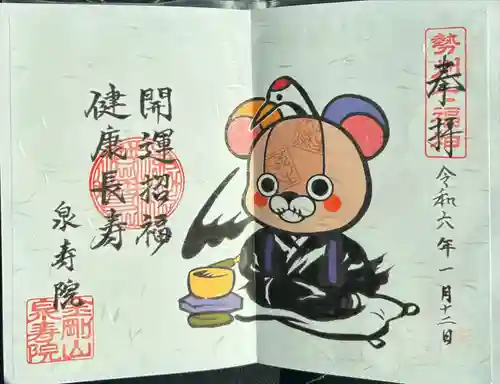 奉拝
令和六年一月十二日
開運招福
健康長寿
泉寿院
金剛山
泉寿院